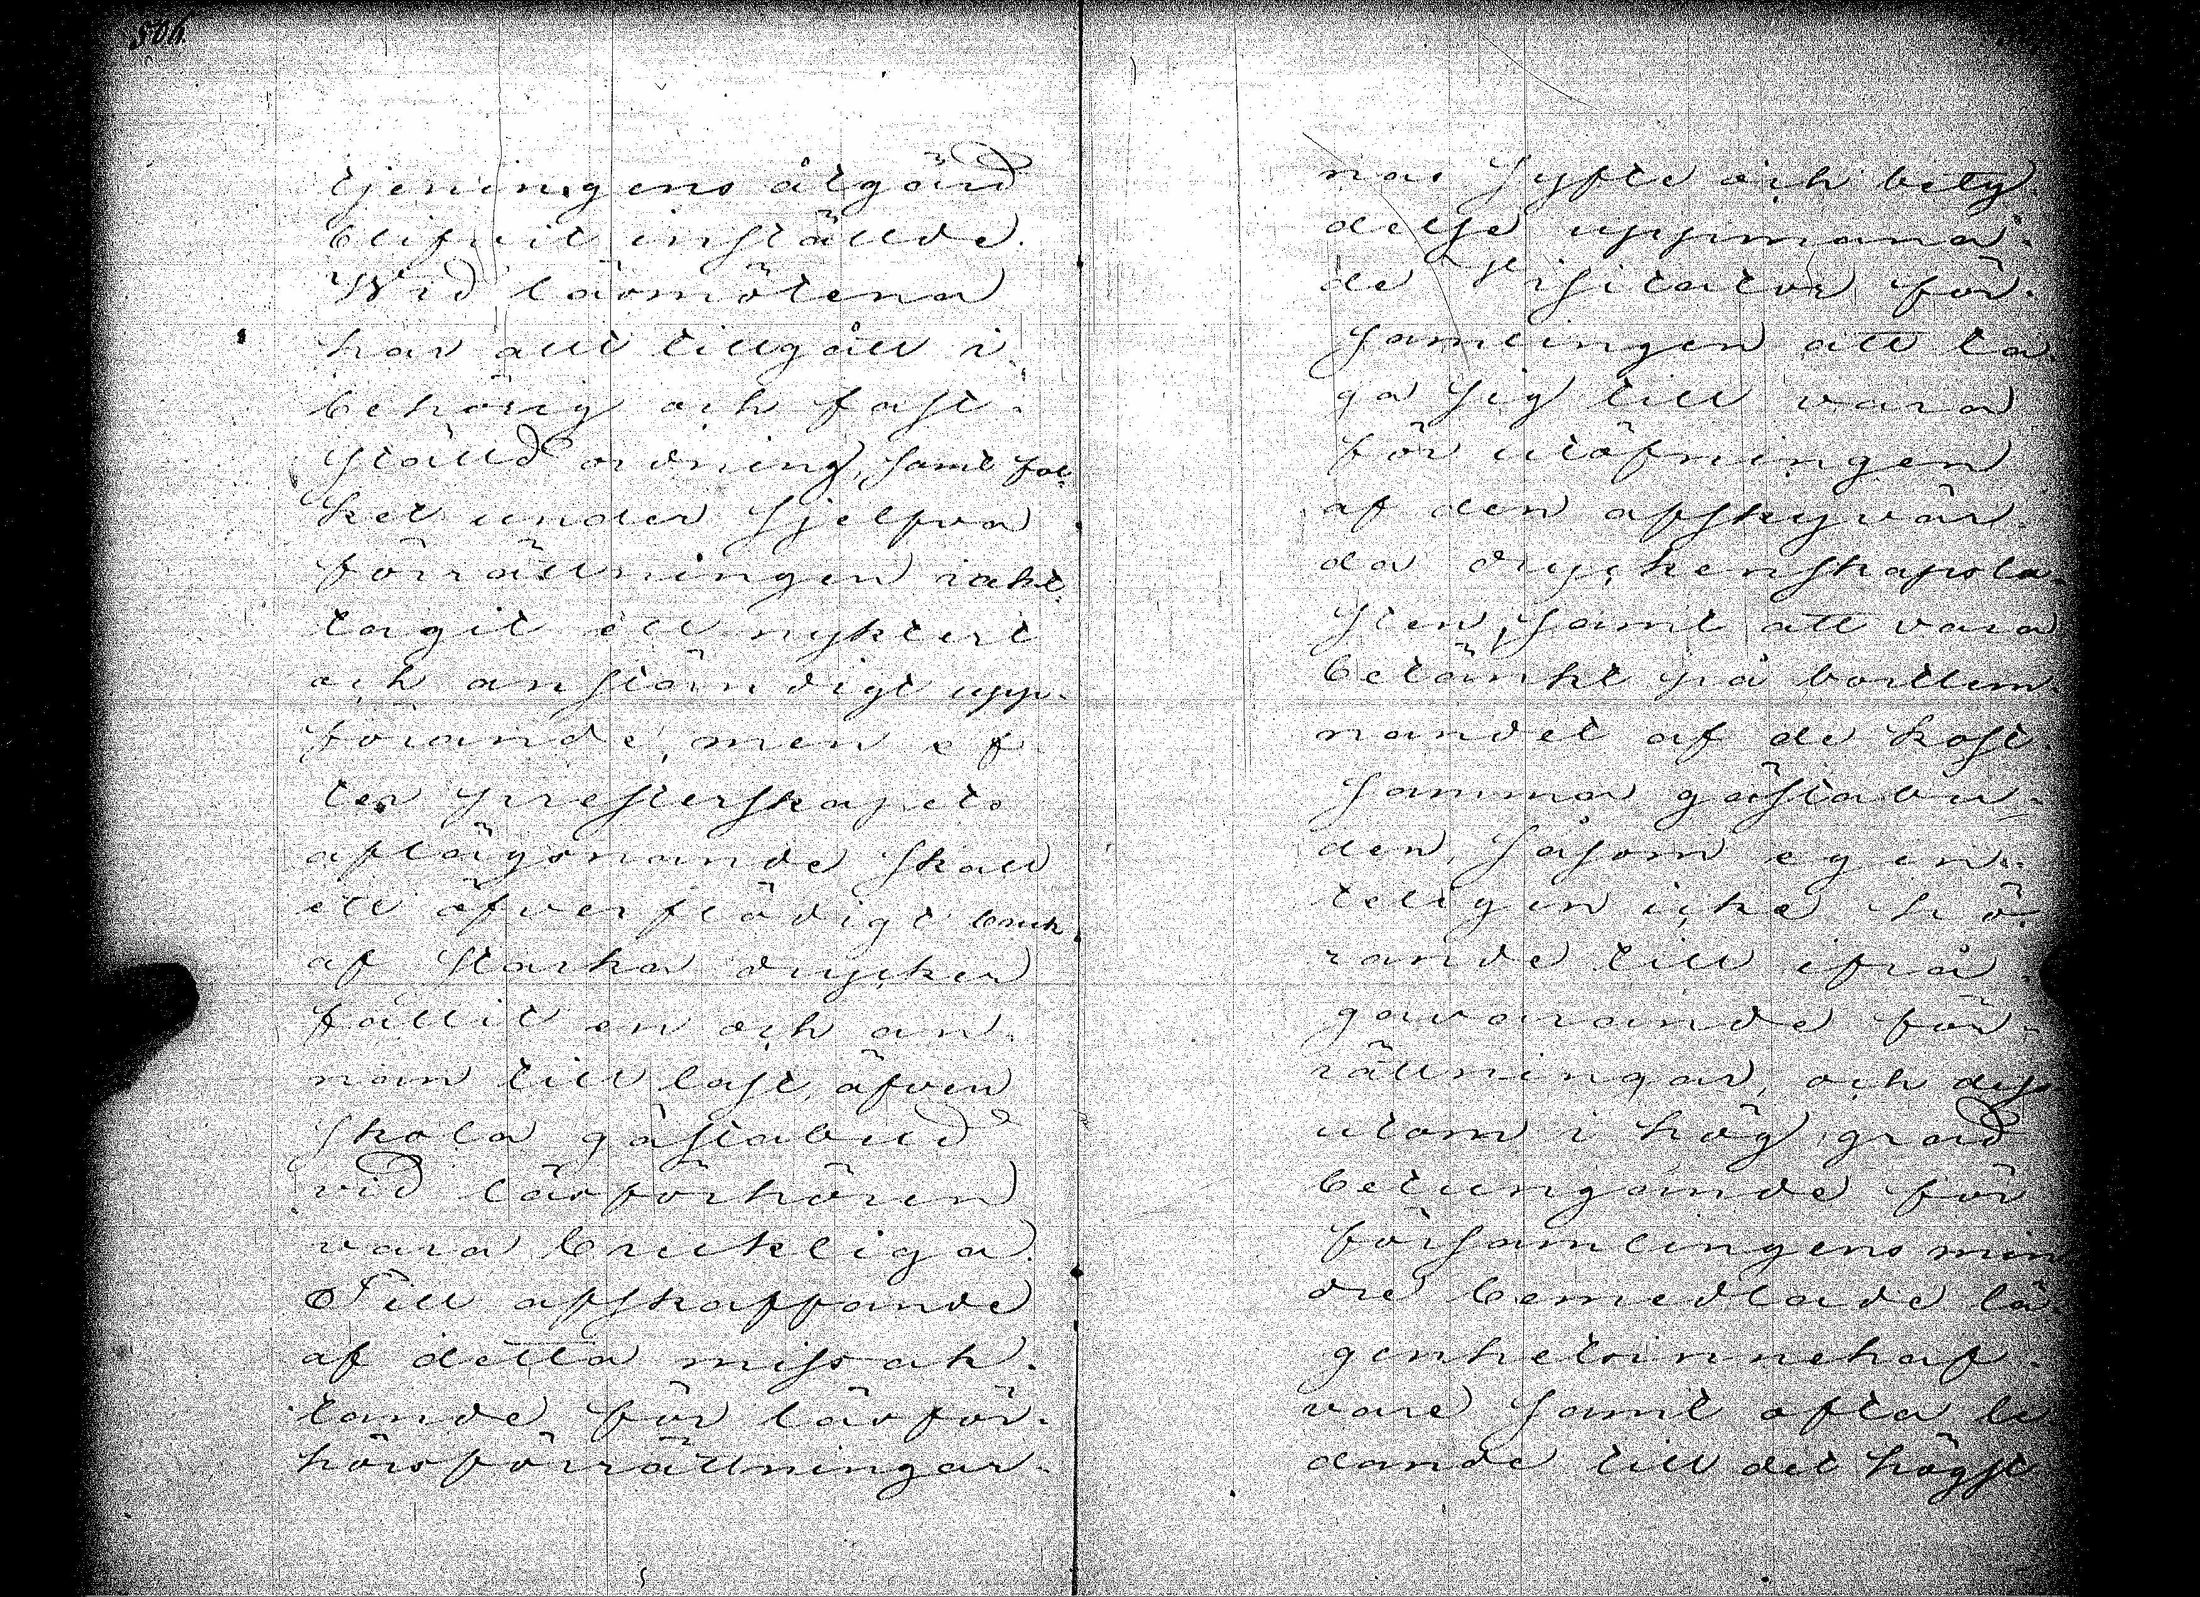 506
tjeningens åtgärd
blifvit inställde.
Wid läsmötena
har allt tillgått i
behörig och fast-
ställd ordning, samt fol-
ket under sjelfva
förrättningen iakt-
tagit ett nyktert
och anständigt upp-
förande, men ef-
ter presterskapets
aflägsnande skall
ett öfverflödigt bruk
af starka drycker
fallit en och an-
nan till last, äfven
skola gästabud
vid läsförhören
vara brukliga.
Till afskaffande
af detta missak-
tande för läsför-
hörsförrättningar-
nas syfte och bety-
delse uppmana-
de Visitator för-
samlingen att ta-
ga sig till vara
för utöfningen
af den afskyvär-
da dryckenskapsla-
sten, samt att vara
betänkt på bortlem-
nandet af de kost-
samma gästabu-
den, såsom egen-
teligen icke hö-
rande till ifrå-
gavarande för-
rättningar, och dess-
utom i hög grad
betungande för
församlingens min-
dre bemedlade lä-
genhetsinnehaf-
vare samt ofta le-
dande till det högst